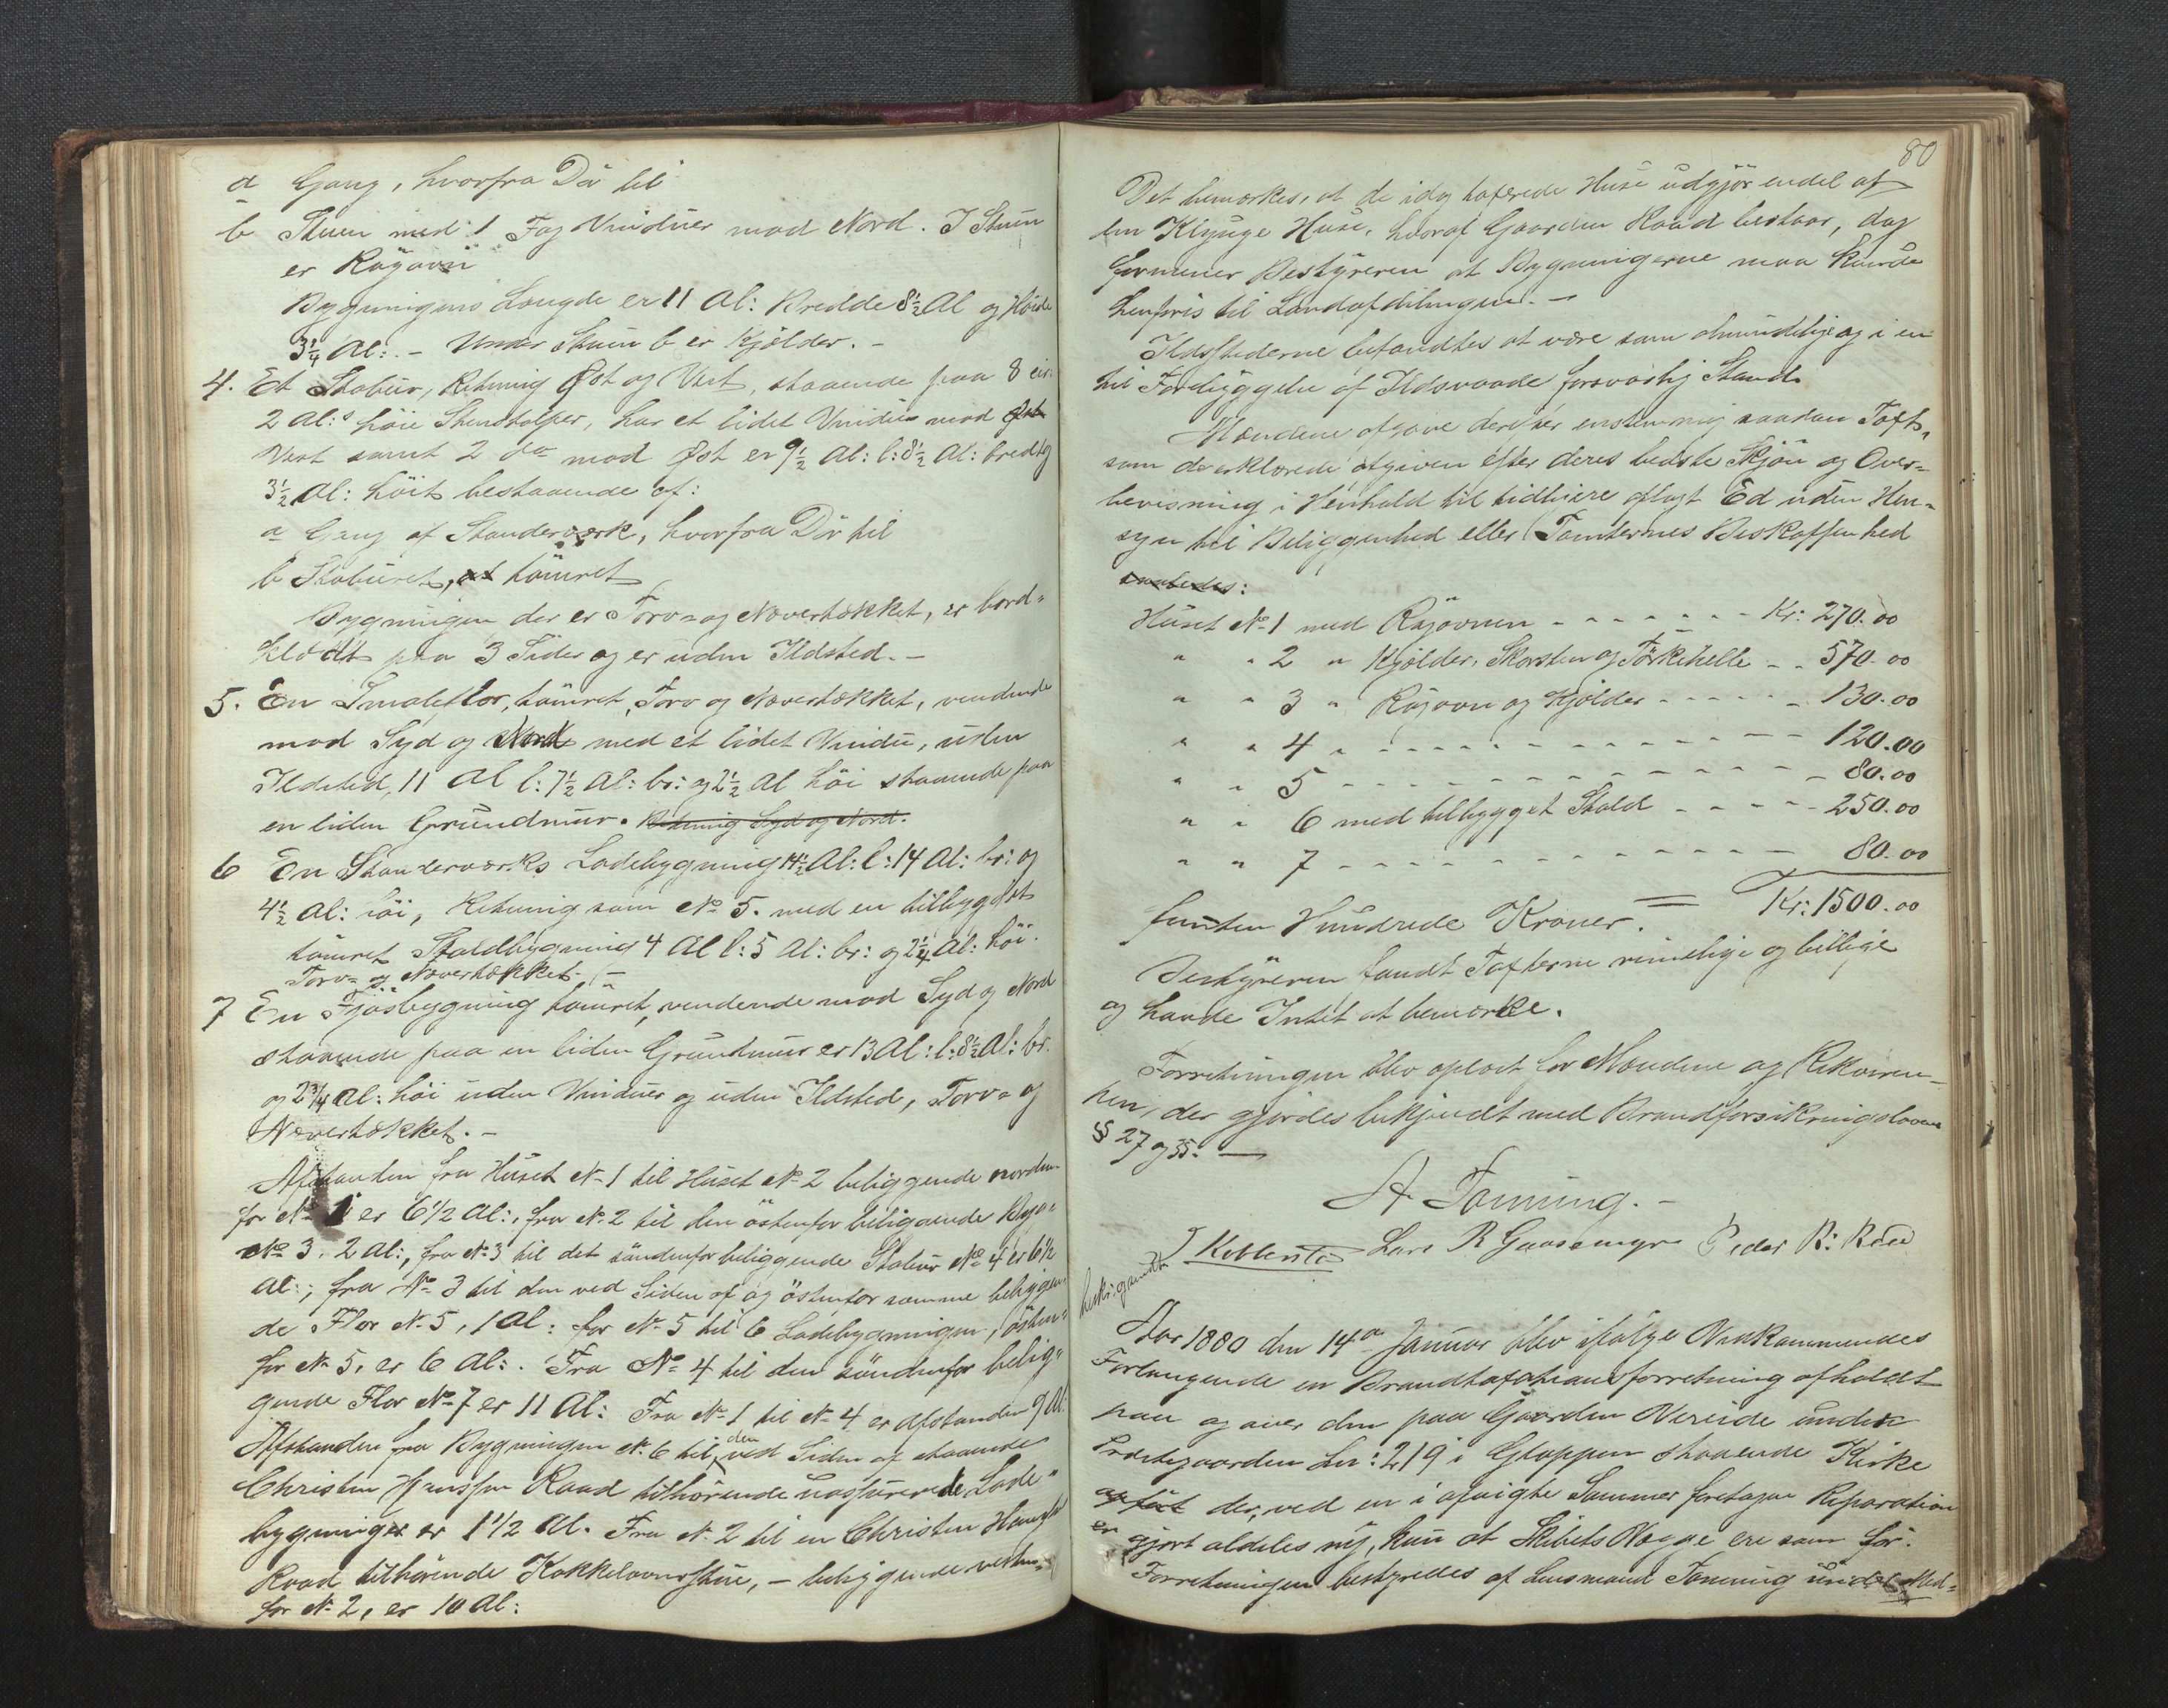 a Gang, hvorfra Dör til
b Stuen med 1 Fag Vinduer mod Nord. I Stuen
er Røgovn
Bygningens Længde er 11 Al: Bredde 8½ Al og Höide
3¼ Al:. - Under Stuen b er Kjælder. -
4. Et Stabur, Retning Øst og Vest, staaende paa 8 
2 Al:s höie Stenstolper, har et lidet Vindue mod Øst
Vest samt 2 do mod Øst er 9½ Al: l: 8½ Al: bredt og
3½ Al: höit bestaaende af:
a Gang af Standerværk, hvorfra Dör til
b Staburet, at tömret
Bygningen der er Torv- og Nævertækket, er bord-
klædt paa 3 Sider og er uden Ildsted. -
5. En Smaleflor, tömret, Torv og Nævertækket, vendende
mod Syd og Nord med et lidet Vindu, uden
Ildsted, 11 Al l: 7½ Al: br: og 2½ Al höi staaende paa
en liden Grundmur. Retning Syd og Nord.
6 En Standerværks Ladebygning 14½ Al: l: 14 Al: br: og
4½ Al: höi, Retning som No 5. med en tilbygget
tömret Staldbygning 4 Al l: 5 Al: br: og 2¼ Al: höi.
Torv- og Nævertækket. -
7 En Fjösbygning tömret, vendende mod Syd og Nord
staaende paa en liden Grundmur er 13 Al: l: 8½ Al: br.
og 2¾ Al: höi uden Vinduer og uden Ildsted, Torv- og
Nævertækket. -
Afstanden fra Huset No 1 til Huset No 2 beliggende norden-
for No 1 er 6 1/2 Al:, fra No 2 til den östenfor beliggende Byg:
No 3. 2 Al:, fra No 3 til det söndenfor beliggende Stabur No 4 er 6½
Al:; fra No 3 til den ved Siden af og östenfor samme beliggen
de Flor No 5, 1 Al: for No 5 til 6 Ladebygningen, östen-
for No 5, er 6 Al:. Fra No 4 til den söndenfor belig-
gende Flor No 7 er 11 Al: Fra No 1 til No 4 er Afstanden 9 Al:
Afstanden fra Bygningen No 6 til den ved Siden af staaende
Christen Hanssen Raad tilhörende uassurerede Lade-
bygninger er 1 1/2 Al. Fra No 2 til en Christen Hanss:
Raad tilhörende Kakkelovnsstue, - beliggende vesten-
for No 2, er 10 Al:
80
Det bemærkes, at de idag taxerede Huse udgjör endel af
en Klynge Huse, hvoraf Gaarden Raad bestaar, dog
formener Bestyreren at Bygningerne maa kunde
henföris til Landafdelingen. -
Ildstederne befandtes at være som almindelige og i en
til Forebyggelse af Ildsvaade forsvarlig Stand.
Mændene afgave derefter enstemmig saadan Taxt,
som de erklærede afgiven efter deres bedste Skjön og Over-
bevisning i Henhold til tidligere aflagt Ed uden Hen-
syn til Beliggenhed eller Tomternes Beskaffenhed
saaledes:
Huset No 1 med Røgovnen - - - - - - - Kr: 270.00
" " 2 " Kjælder, Skorsten og Törkehelle - - 570.00
" " 3 " Røgovn og Kjælder - - - - - 130.00
" " 4 " - - - - - - - - - - - 120.00
" " 5 - - - - - - - - - - - - 80.00
" " 6 med tilbygget Stald - - - - - 250.00
" " 7 - - - - - - - - - - - - 80.00
femten Hundrede Kroner. = Kr: 1500.00
Bestyreren fandt Taxterne rimelige og billige
og havde Intet at bemærke.
Forretningen blev oplæst for Mændene og Rekviren-
ten, der gjordes bekjendt med Brandforsikringsloven
§ 27 og 35. -
A Tonning. -
J Lars R Gaasemyr Peder R:
Aar 1880 den 14de Januar blev ifölge Vedkommendes
Forlangende en Brandtaxationsforretning afholdt
paa og over den paa Gaarden Vereide under
Prestegaarden Lnr: 219 i Gloppen staaende Kirke
 der, ved en i afvigte Sommer foretagen Reparation
er gjort aldeles ny, kun at Skibets Vægge ere som för.
Forretningen bestyredes af Lensmand Tonning under Med-